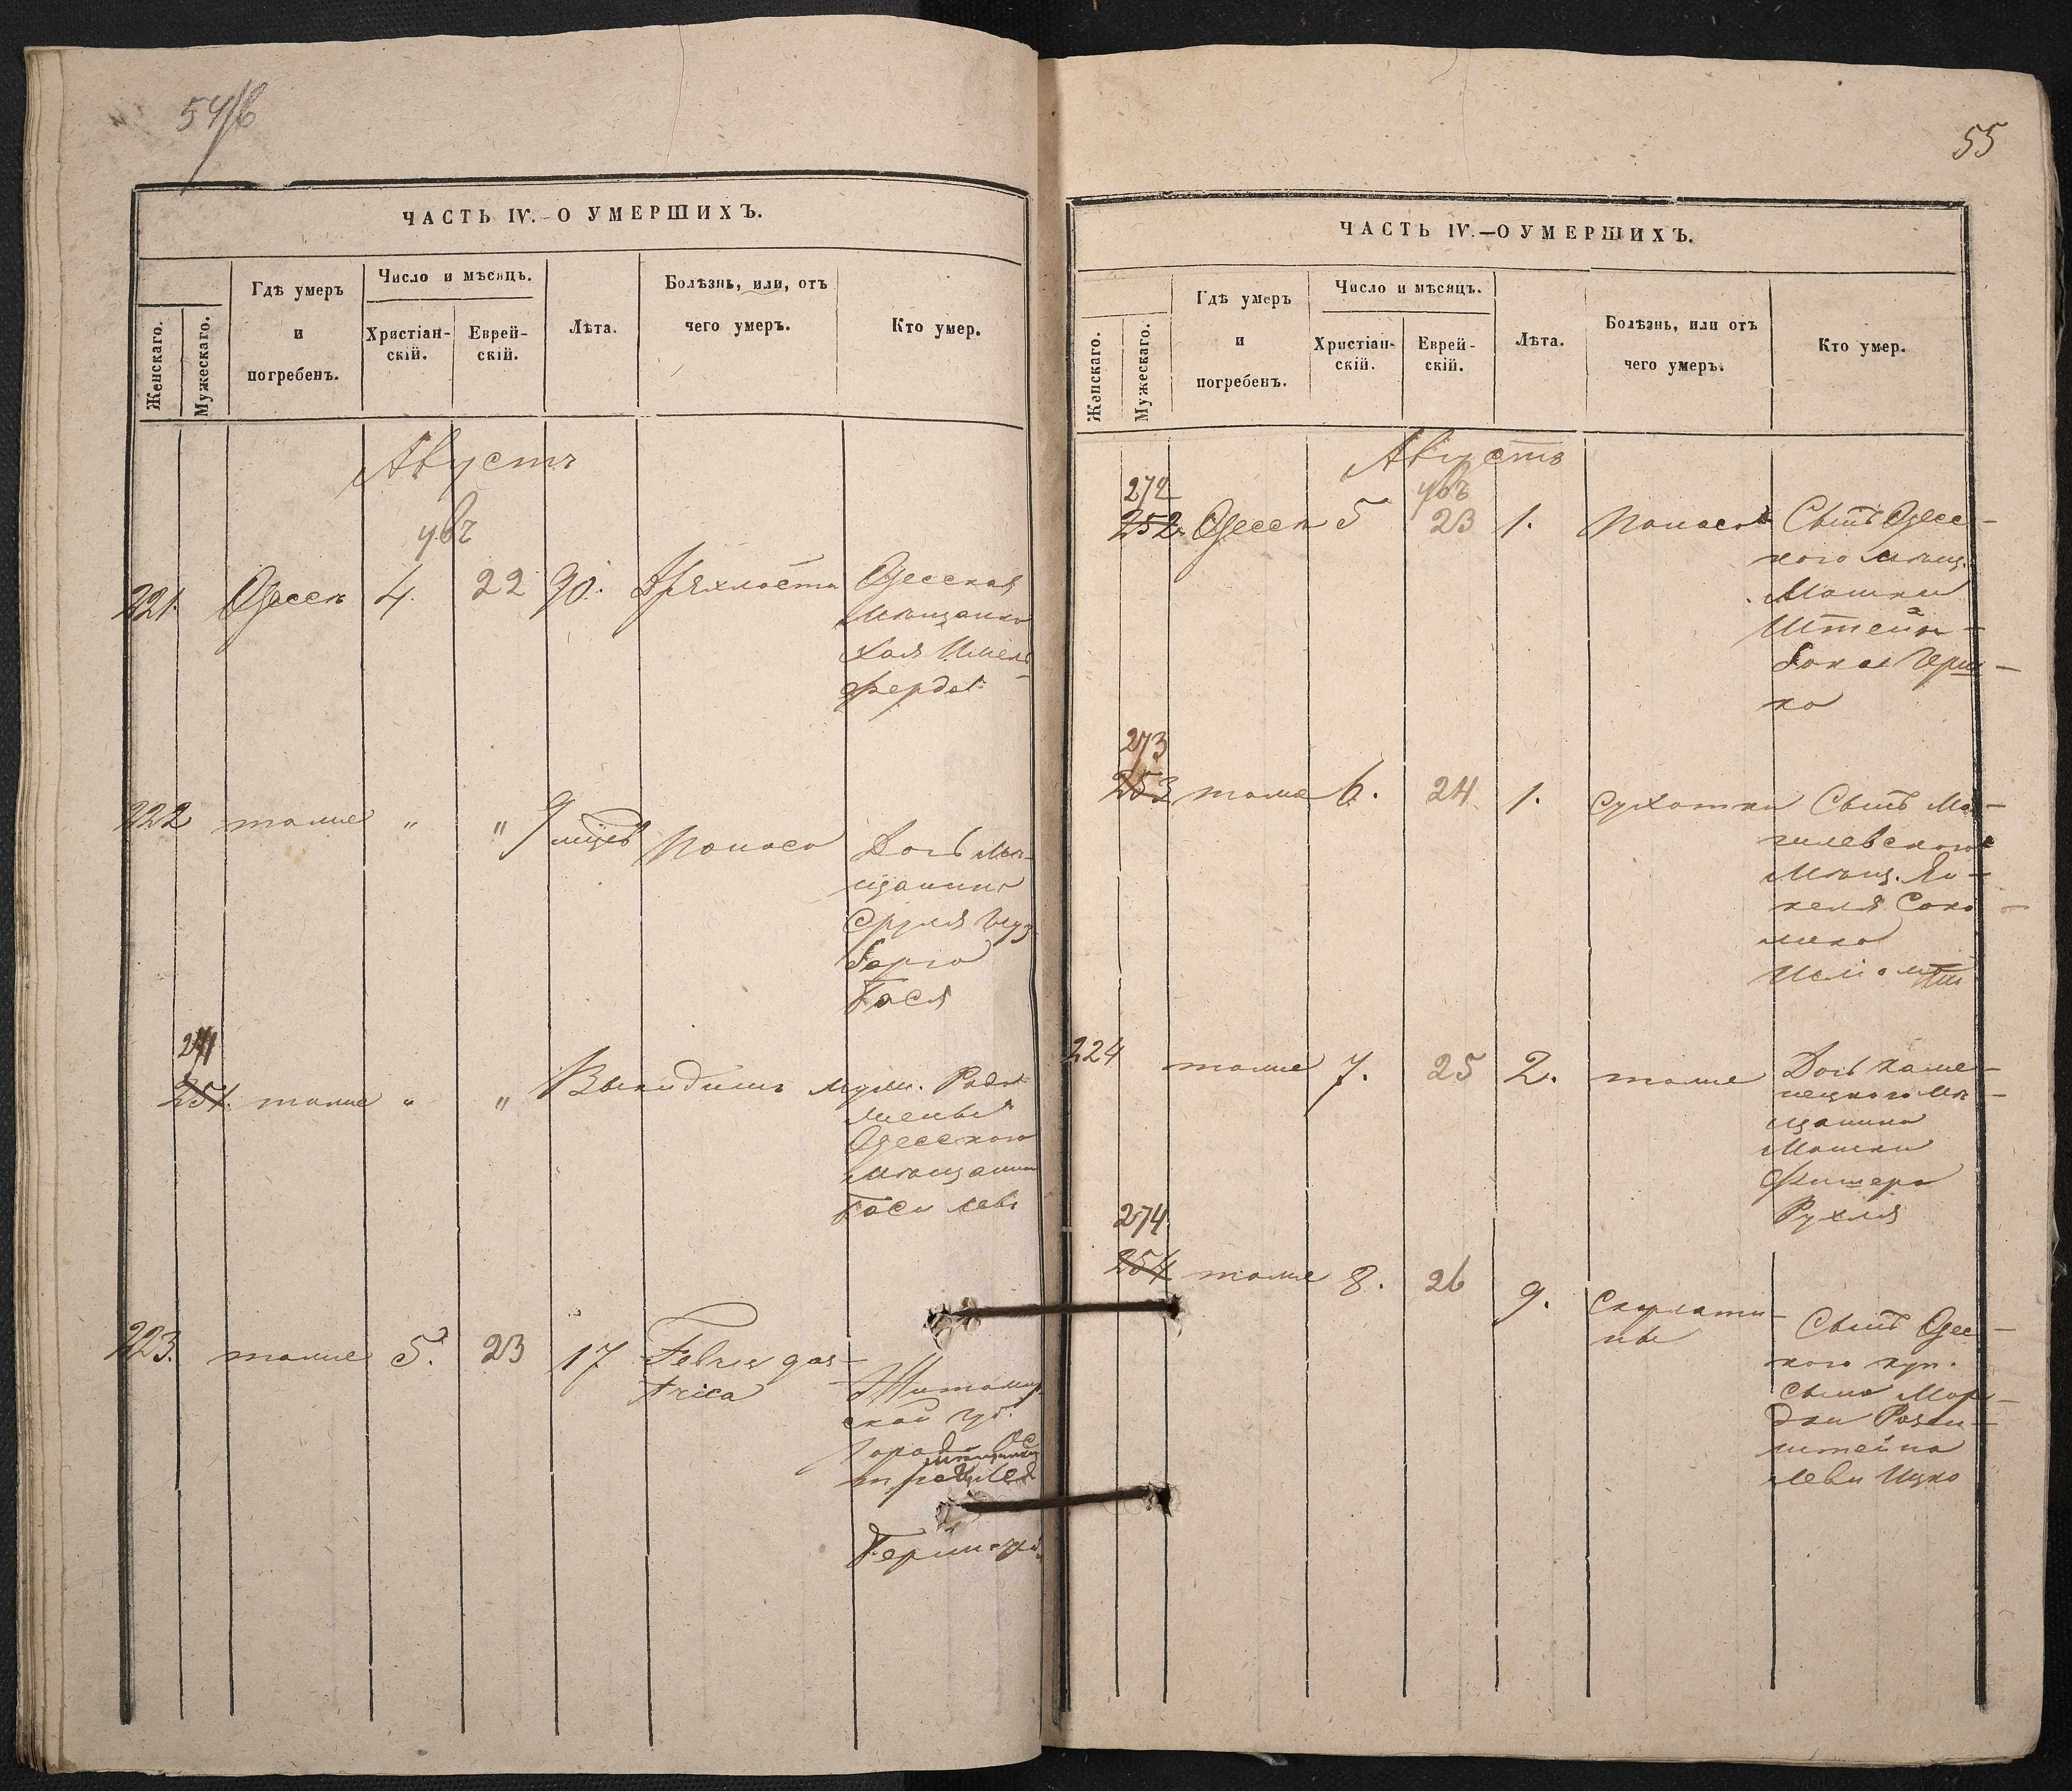 54/б
ЧАСТЬ IV.—О УМЕРШИХЪ.
Женскаго.
Мужескаго.
Гдѣ умеръ
и
погребенъ.
Число и мѣсяцъ.
Христіан-
скій.
Еврей-
скій.
Лѣта.
Болѣзнь, или, отъ
чего умеръ.
Кто умер.
Августъ
221. Одессѣ 4. 22 90. Дряхлость Одесская
мѣщанка
Хая
222 тоже " " 9 мцев Поноса Дочь мѣ-
щанина
Сруля
Бася
271
251. тоже " " Выкидышъ муж.
Одесскаго
мѣщанина
223. тоже 5. 23 17 Febris gas-
trica Житомир
ской губ.
города Ос
мѣщанин
55
ЧАСТЬ IV.—О УМЕРШИХЪ.
Женскаго.
Мужескаго.
Гдѣ умеръ
и
погребенъ.
Число и мѣсяцъ.
Христіан-
скій.
Еврей-
скій.
Лѣта.
Болѣзнь, или отъ
чего умеръ.
Кто умер.
Августъ
272
252. Одессѣ 5 23 1. Поноса Сынъ Одесс-
кого мѣщ.
Мошки
Штейн-
Герш-
ко
273
253 тоже 6. 24. 1. Сухотки Сынъ Мо-
гилевского
Мѣщ. Ян-
келя Соко-
224 тоже 7. 25 2. тоже Дочь Каме-
нецкого мѣ-
щанина
Мошки
Фишера
Рухля
274
254 тоже 8. 26 9. Скарлати-
ны Сынъ Одес-
кого куп.
сына Мор-
дки Розен-
штейна
Леви Ицко